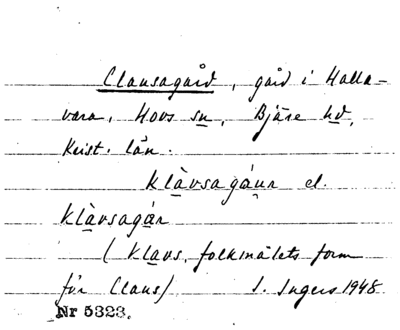 Clausagård, gård i Halla-
vara, Hovs sn, Bjäre hd,
Krist. län.
klàvsagáur el.
klàvsagár
(Klavs, folkmålets form
för Claus) I. Ingers 1948
Nr 5323.